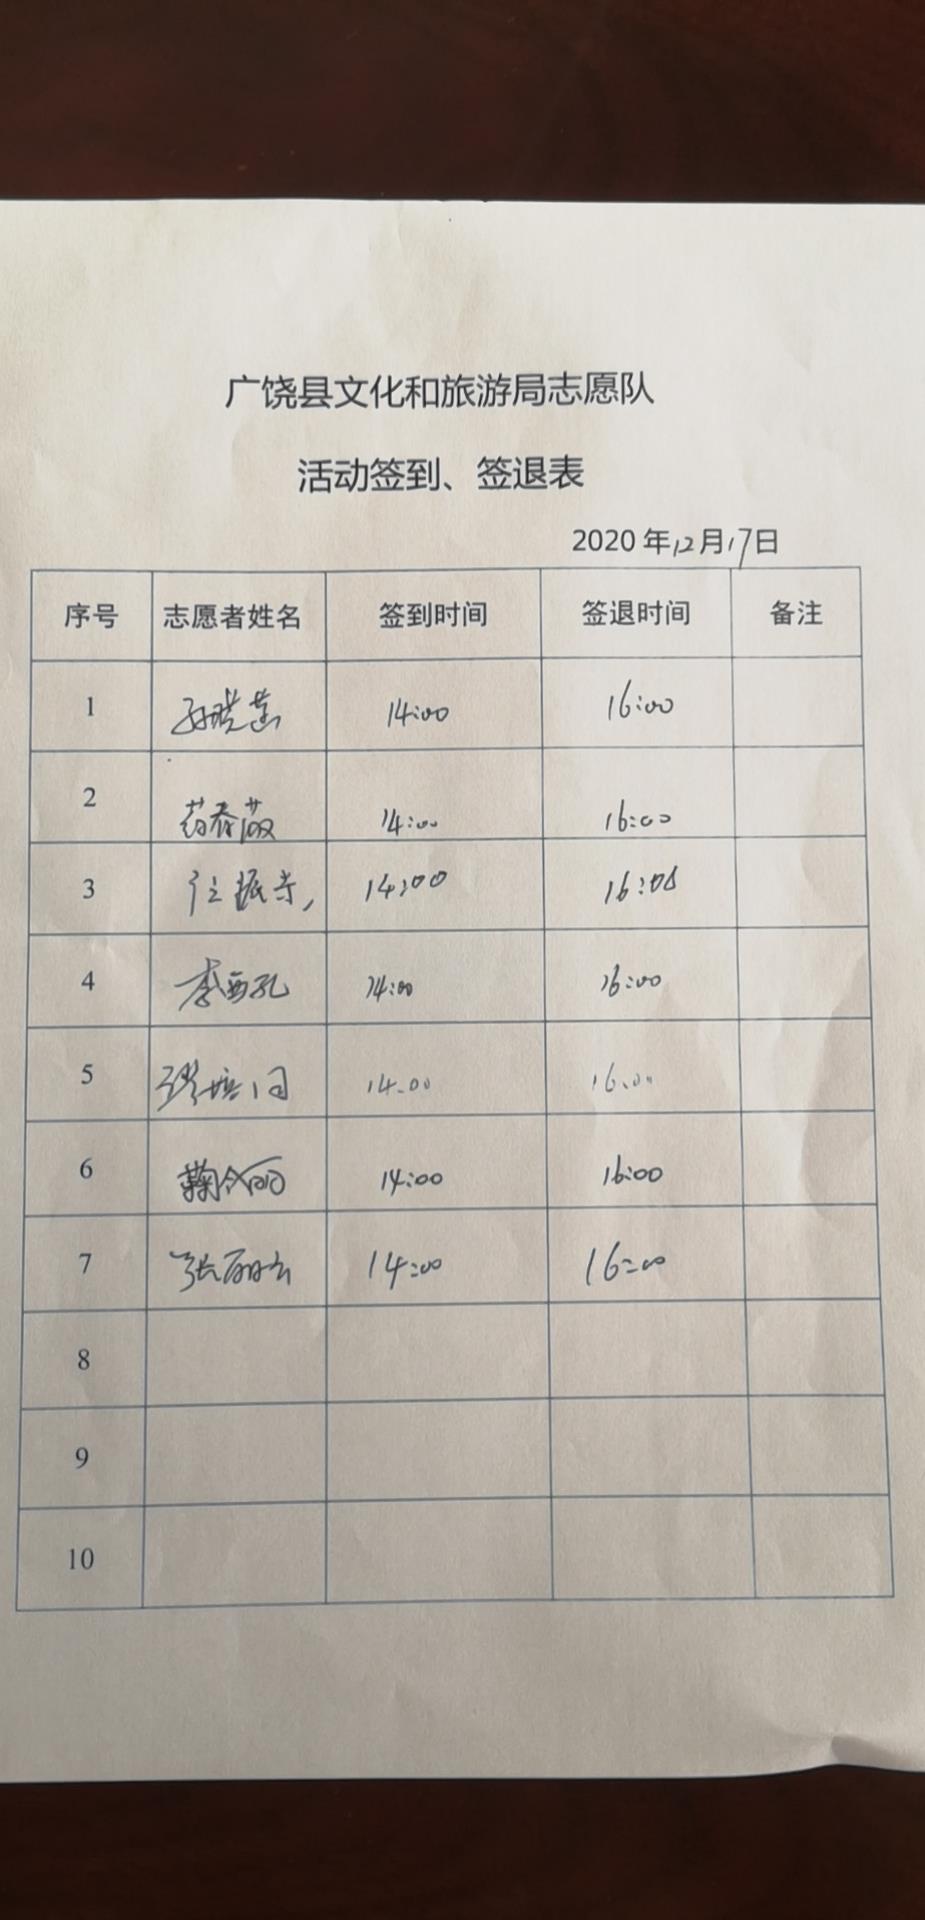 广饶县文化和旅游局志愿队
活动签到、签退表
2020年12月17日
序号 志愿者姓名 签到时间 签退时间 备注
1 14:00 16:00
2 14:00 16:00
3 14:00 16:00
4 14:00 16:00
5 14:00 16:00
6 鞠令丽 14:00 16:00
7 14:00 16:00
8
9
10